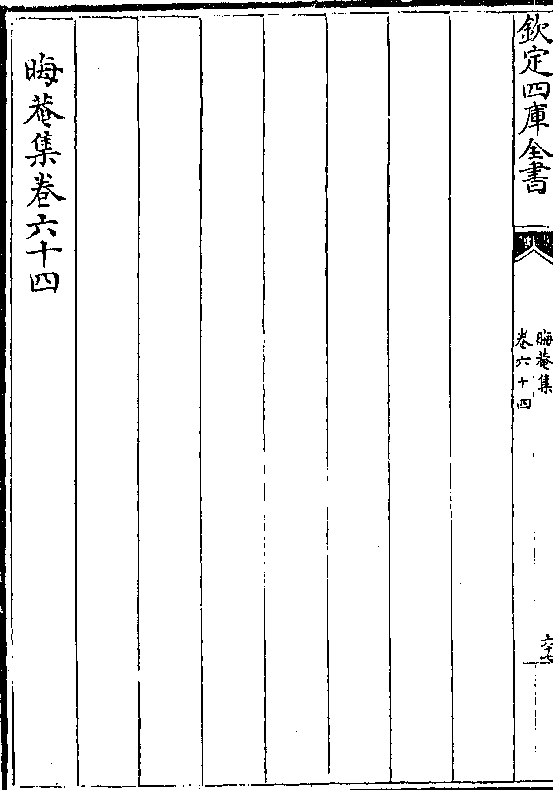 欽定四庫全書
晦菴集
卷六十四
晦菴集卷六十四